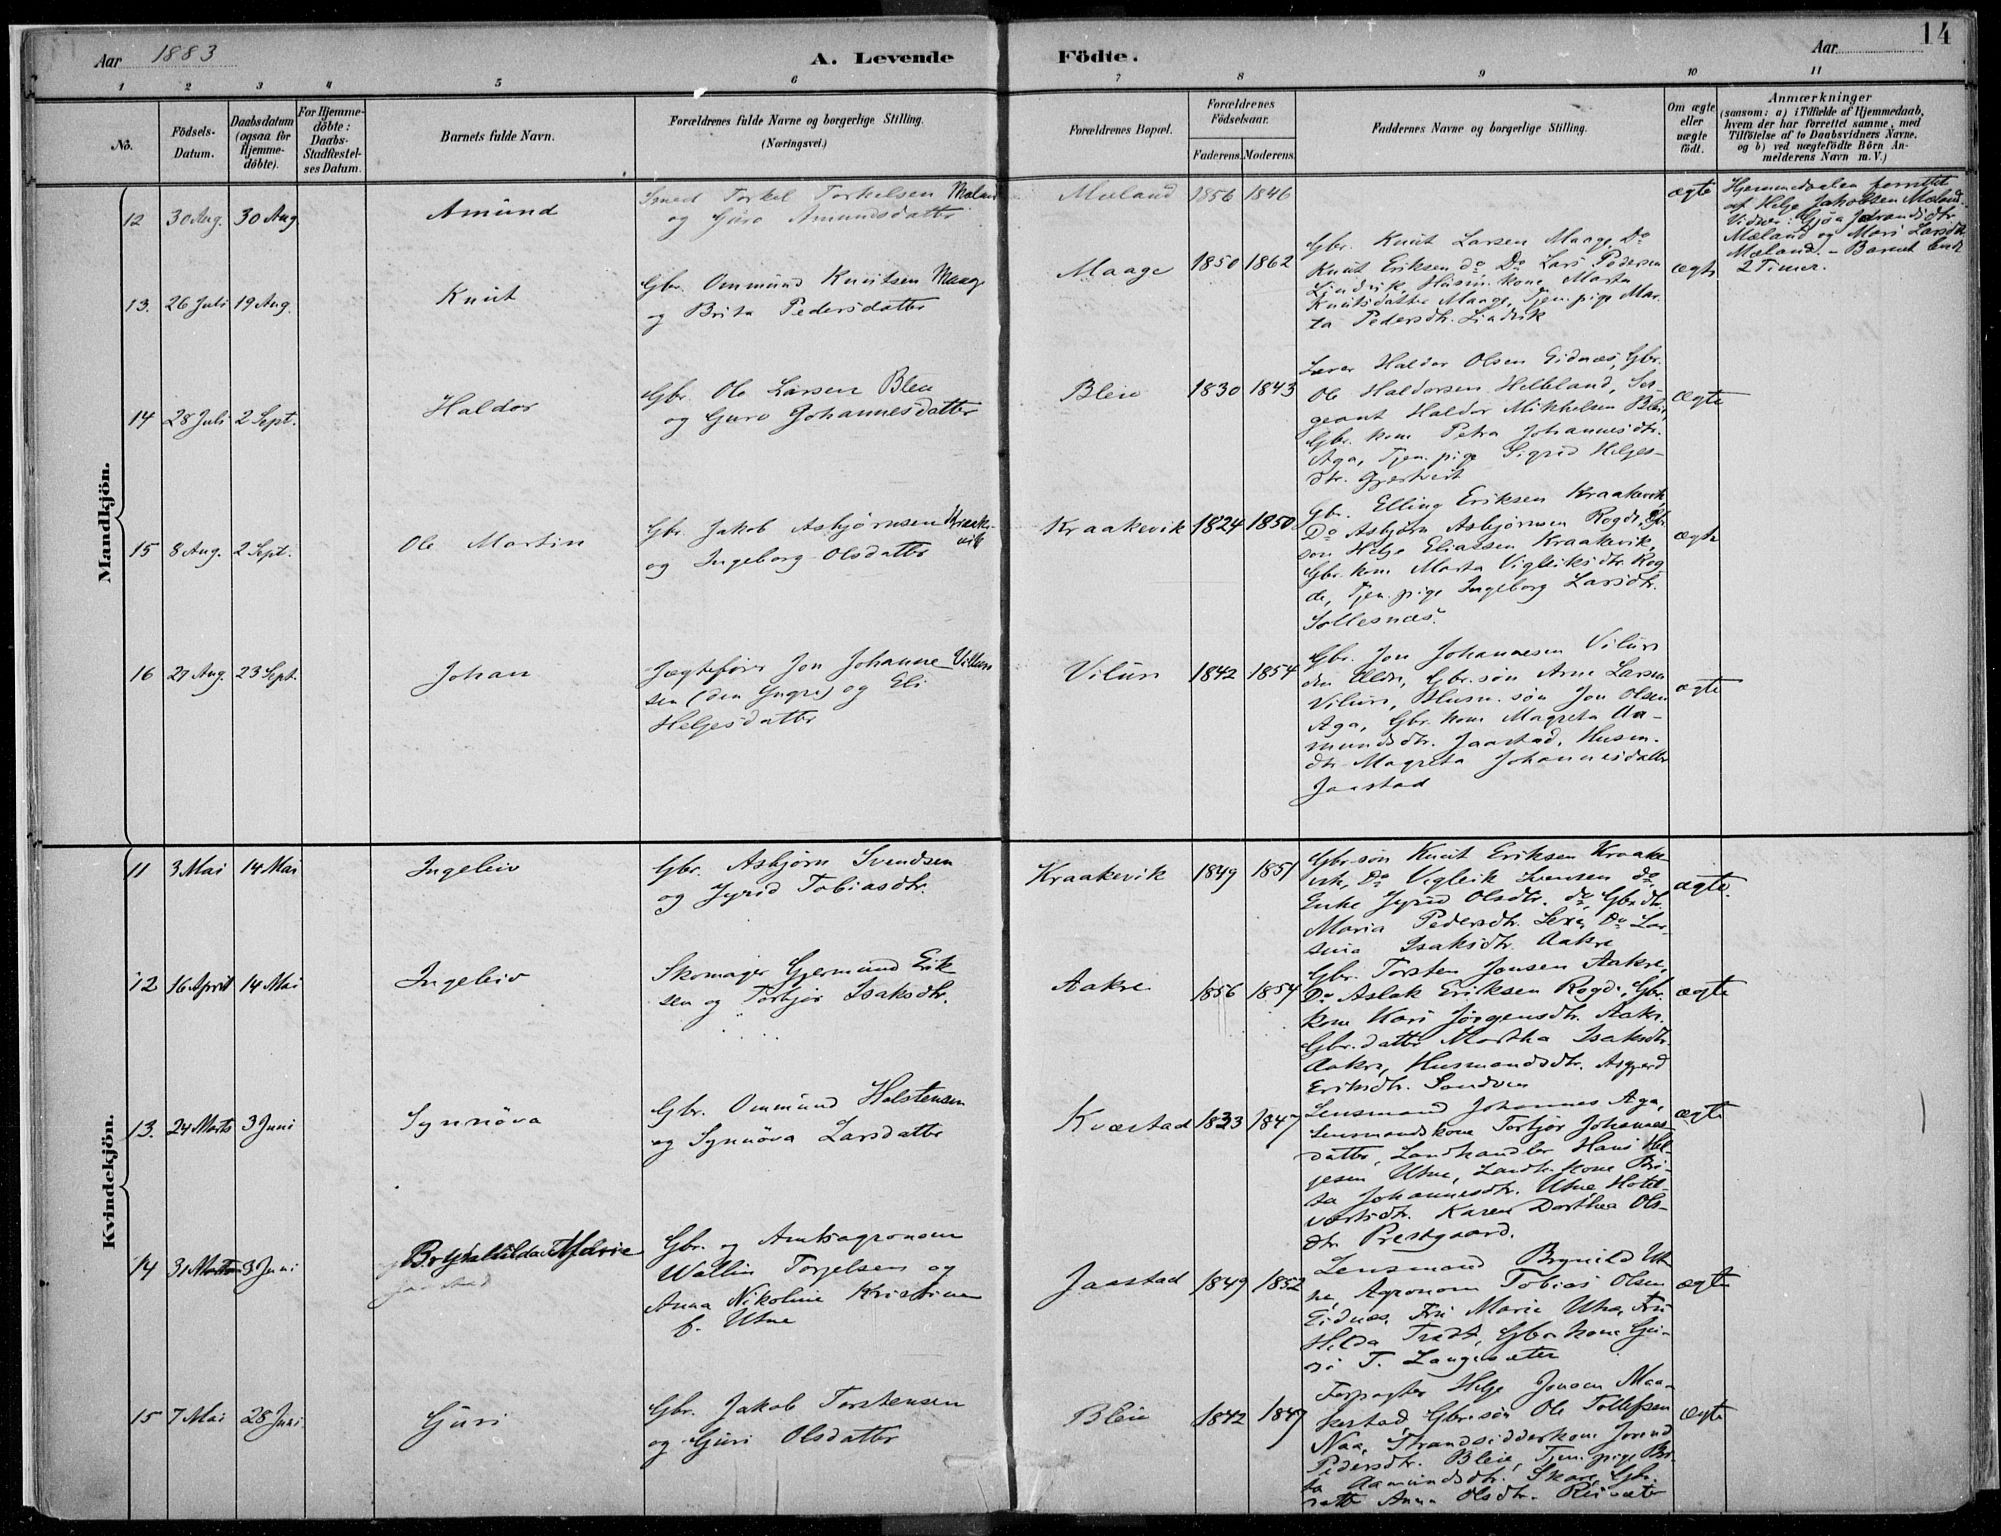 Aar 1883
A. Levende Födte.
Aar
14
1 2 3 4 5 6 7 8 9 10 11
No.
Födsels-Datum.
Daabsdatum (ogsaa for Hjemmedöbte).
For Hjemmedöbte: Daabs-Stadfæstelses Datum.
Barnets fulde Navn.
Forældrenes fulde Navne og borgerlige Stilling.
(Næringsvei.)
Forældrenes Bopæl.
Forældrenes Födselsaar.
Faderens. Moderens.
Faddernes Navne og borgerlige Stilling.
Om ægte eller uægte födt.
Anmærkninger
(saasom: a) i Tilfælde af Hjemmedaab,
hvem der har forrettet samme, med
Tilföielse af to Daabsvidners Navne.
og b) ved uægtefödte Börn An-
melderens Navn m. V.)
Mandkjön.
12 30 Aug. 30 Aug. Amund
Smed Torkel Torkelsen Mæland
og Guro Amundsdatter
Mæland 1856 1846 ægte
Hjemmedaaben forrettet
af Helge Jakobsen Mæland.
Vidner: Gjøa
Mæland og Mari Larsdtr.
Mæland. – Barnet levde
2 Timer.
13. 26 Juli 19 Aug. Knut
Gbr. Ommund Knutsen Maage
og Brita Pedersdatter
Maage 1850 1862
Gbr. Knut Larsen Maage, Do
Knut Eriksen do, Do Lars Pedersen
Lindvik, Husm. kone Marta
Knutsdatter Maage, Tjen. pige Mar-
ta Pedersdtr. Lindvik
ægte
14 28 Juli 2 Sept. Haldor
Gbr. Ole Larsen Bleie
og Guro Johannesdatter
Bleie 1830 1843
Lærer Haldor Olsen Eidnæs, Gbr.
Ole Haldorsen Helleland, Ser-
geant Haldor Mikkelsen Bleie,
Gbr. kone Petra Johannesdtr.
Aga, Tjen. pige Sigrid Helges-
dtr.
Ægte
15 8 Aug. 2 Sept. Ole Martin
Gbr. Jakob Asbjørnsen Kraake-
vik
og Ingeborg Olsdatter
Kraakevik 1824 1850
Gbr. Elling Eriksen Kraakevik,
Do Asbjørn Asbjørnsen Rogde, Gbr.
søn Helge Eliassen Kraakevik,
Gbr. kone Marta Vigleiksdtr. Rog-
de, Tjen. pige Ingeborg Larsdtr.
Sollesnæs.
ægte
16 27 Aug. 23 Sept. Johan
Jægtefører Jon Johanne- Vilure
sen (den Yngre) og Eli
Helgesdatter
Vilure 1842 1854
Gbr. Jon Johannesen Vilure
den Eldre, Gbr. søn Arne Larsen
Vilure, Husm. søn Jon Olsen
Aga, Gbr. kone Magreta Aa-
mundsdtr. Jaastad, Husm.
dtr. Magreta Johannesdatter
Jaastad
ægte
Kvindekjön.
11 3 Mai 14 Mai Ingeleiv
Gbr. Asbjørn Svendsen
og Jyrid Tobiasdtr.
Kraakevik 1849 1851
Gbr. søn Knut Eriksen Kraake-
vik, Do Vigleik Svensen do,
Enke Jyrid Olsdtr. do, Gbr. dtr.
Maria Pedersdtr. Sexe, Do Lar-
sina Isaksdtr. Aakre
ægte.
12 16 April 14 Mai Ingeleiv
Skomager Gjermund Erik-
sen og Torbjør Isaksdtr.
Aakre 1856 1854
Gbr. Torsten Jonsen Aakre,
Do Aslak Eriksen Rogde, Gbr.
kone Kari Jørgensdtr. Aakre
Gbr. datter Martha Isaksdtr.
Aakre, Husmandsdtr. Asgjerd
Eriksdtr. Sandven
ægte
13. 24 Marts 3 Juni Synnöva
Gbr. Ommund Holstensen
og Synnöva Larsdatter
Kvæstad 1833 1847
Lensmand Johannes Aga,
Lensmandskone Torbjør Johannes-
datter, Landhandler Hans Hel-
gesen Utne, Landh. kone Bri-
ta Johannesdtr. Utne Hotel-
værtsdtr. Karen Dorthea Ols-
dtr. Prestgaard.
ægte
14 31 Marts 3 Juni
Jaastad
Gbr. og Amtsagronom
Wallin Torgelsen og
Anna Nikoline Kristine
f. Utne
Jaastad 1849 1852
Lensmand Brynild Ut-
ne, Agronom Tobias Olsen
Eidnæs, Fru Marie Utne, Fru
Hilda Tradt, Gbr. kone Gu-
ro T. Langesæter
ægte
15 7 Mai 28 Juni Guri
Gbr. Jakob Torstensen
og Guri Olsdatter
Bleie 1842 1847
Forpagter Helge Jonsen Maa-
kestad, Gbr. søn Ole Tollefsen
Naa, Strandsidderkone Jorend
Pedersdtr. Bleie, Tjen. pige Bri-
ta Aamundsdtr. Skare, Gbr.
datter Anna Olsdtr. Reisæter
Ægte